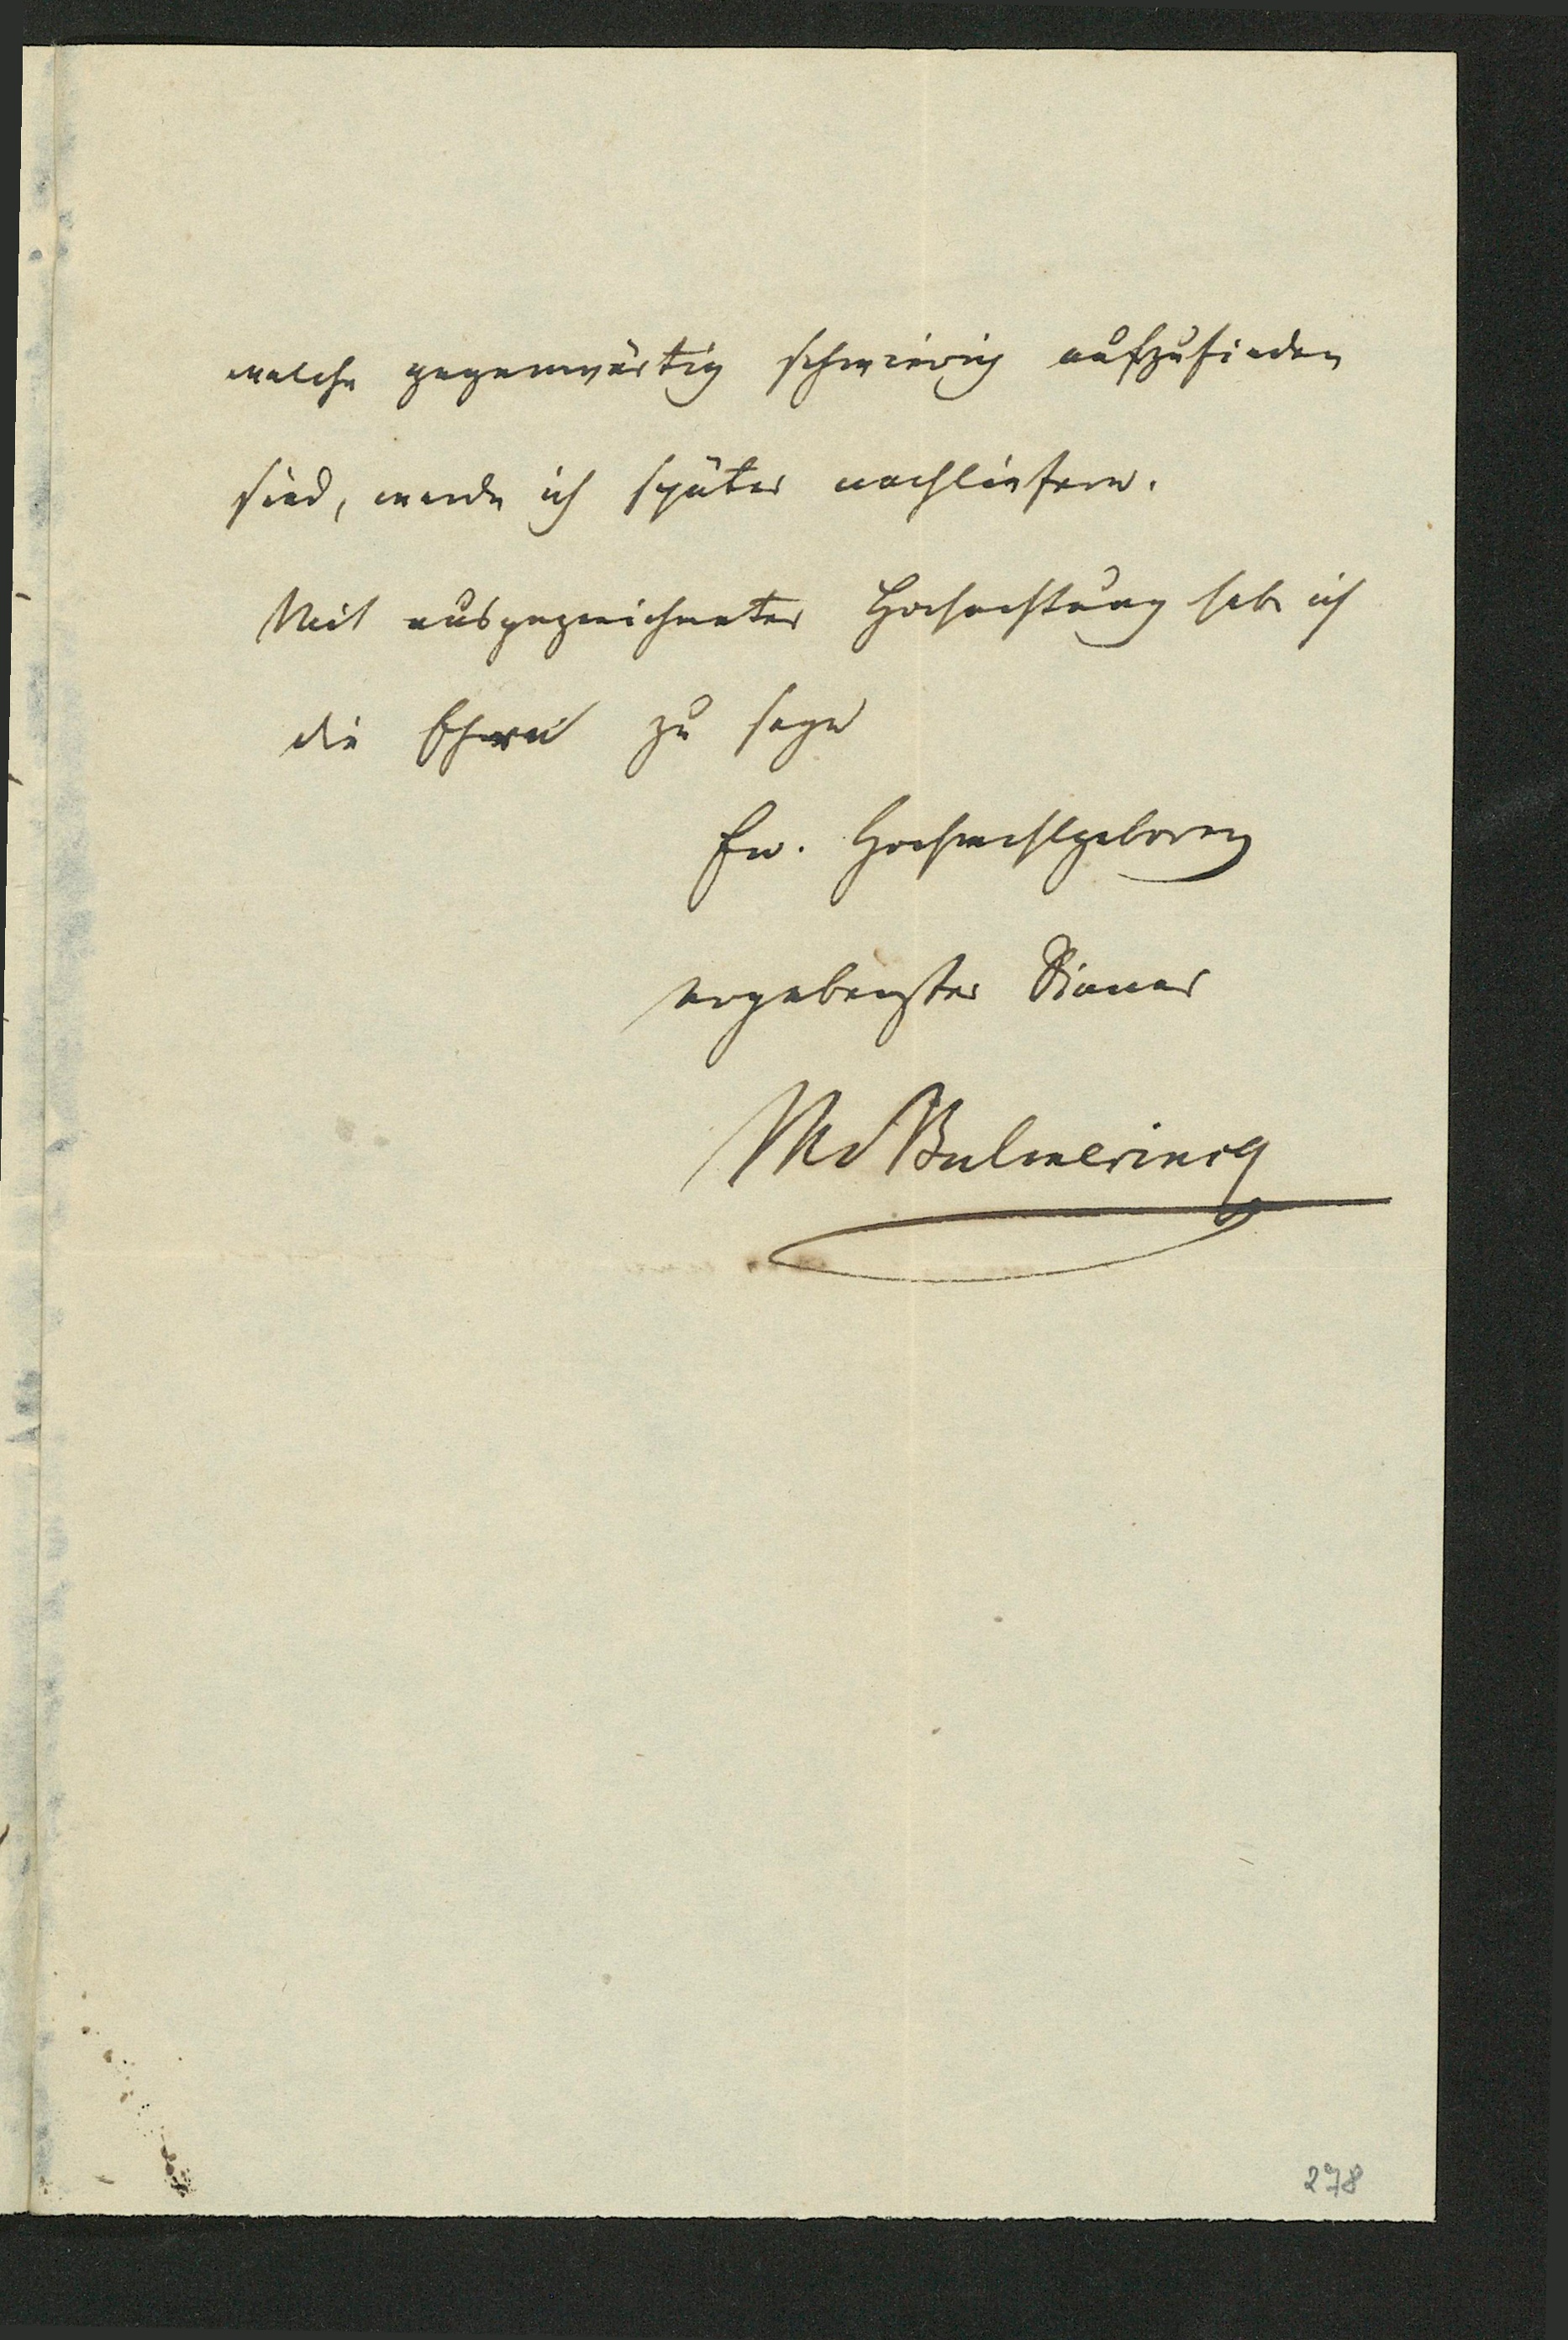 welche gegenwärtig schwierig aufzufinden
sind, werde ich später nachliefern.
Mit ausgezeichneter Hochachtung hab ich
die Ehre zu seyn
Ew. Hochwohlgeboren
ergebenster Diener
MvBulmerincq
278